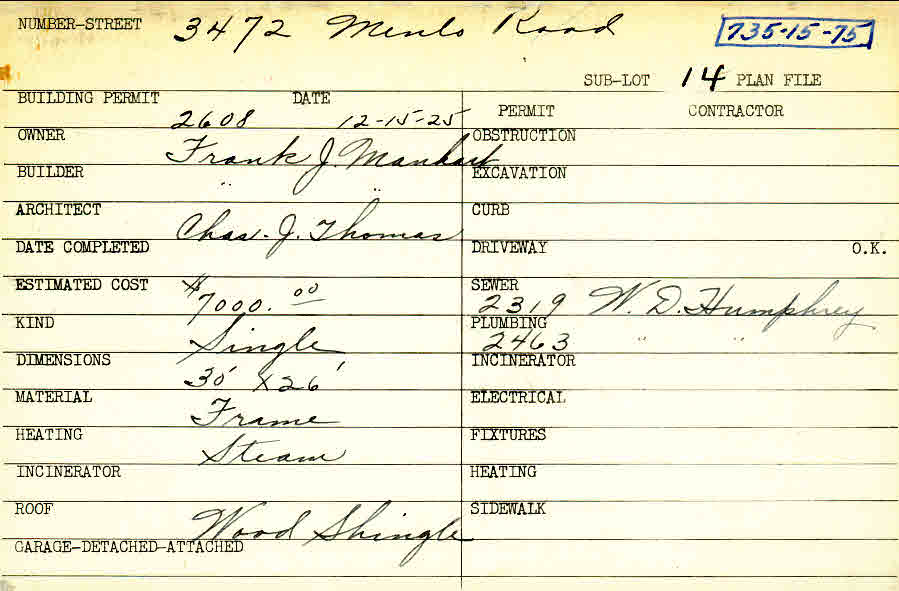 NUMBER-STREET 3472 Menlo Road 735-15-75
SUB-LOT 14 PLAN FILE
BUILDING PERMIT DATE PERMIT CONTRACTOR
2608 12-15-25
OWNER Frank J. Manhart OBSTRUCTION
BUILDER " " EXCAVATION
ARCHITECT Chas. J. Thomas CURB
DATE COMPLETED DRIVEWAY O.K.
ESTIMATED COST $7000.00 SEWER
2319 W. D. Humphrey
KIND Single PLUMBING
2463 " "
DIMENSIONS 30' x 26' INCINERATOR
MATERIAL Frame ELECTRICAL
HEATING Steam FIXTURES
INCINERATOR HEATING
ROOF Wood Shingle SIDEWALK
GARAGE-DETACHED-ATTACHED